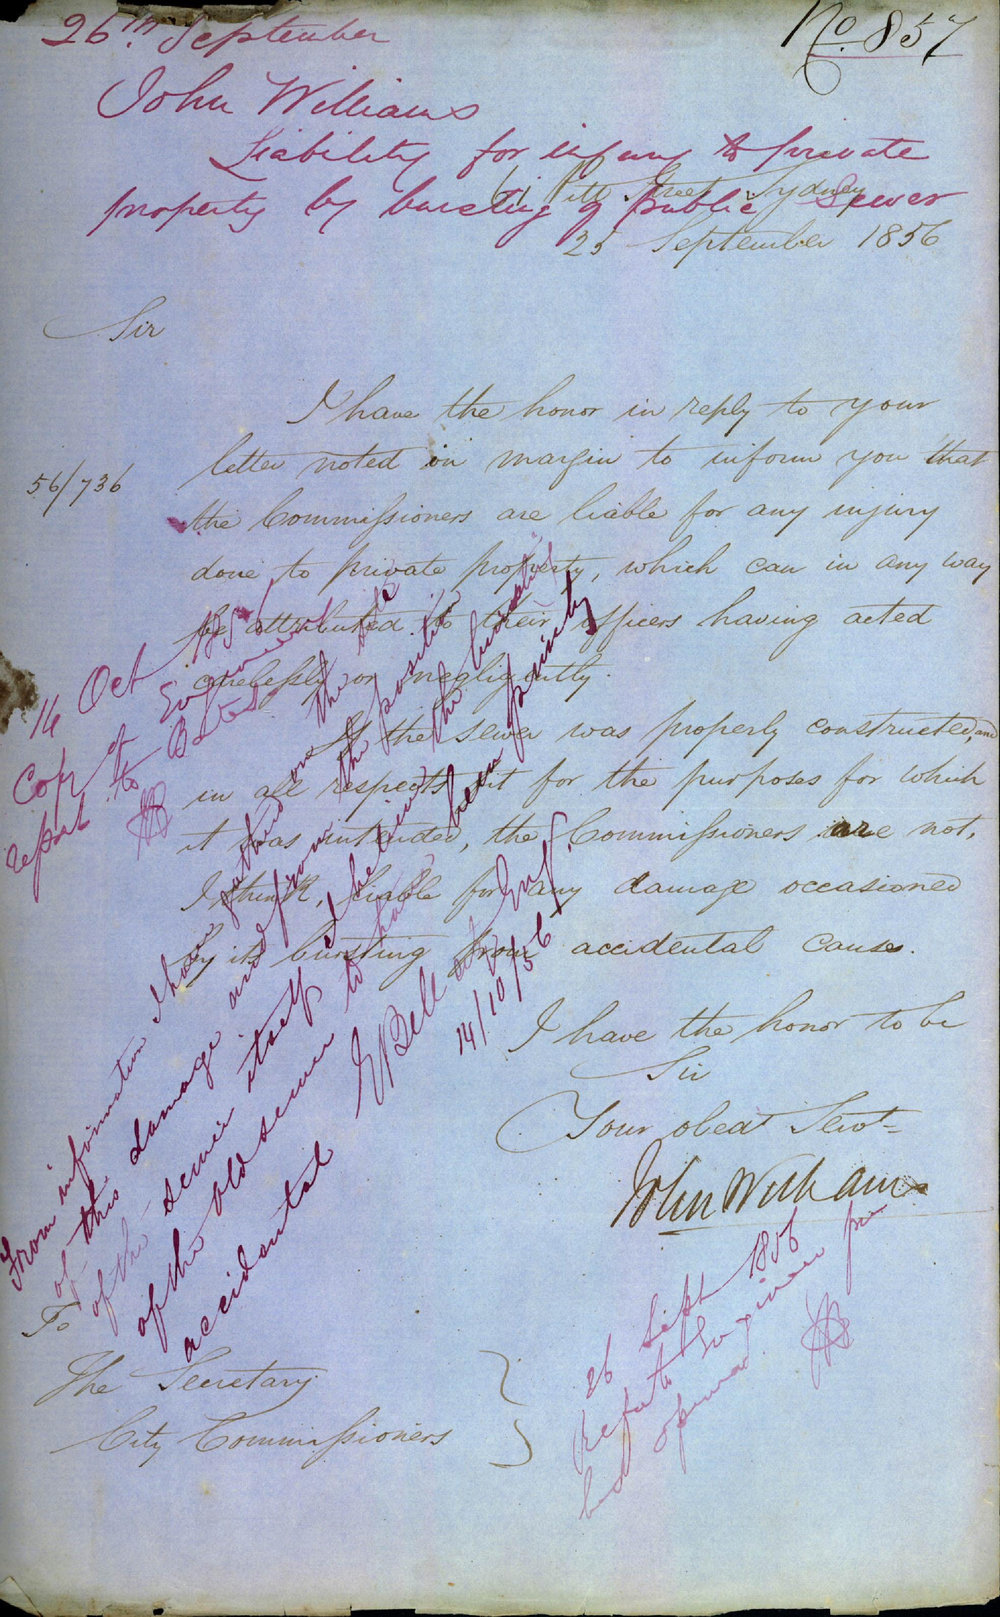 26th September
No. 857
John Williams
Liability for injury to private
property by bursting of public Sewer
Pitt Street Sydney
25 September 1856
Sir
I have the honor in reply to your
56/736
letter noted in margin to inform you that
the Commissioners are liable for any injury
done to private property, which can in any way
be attributed to their officers having acted
carelessly or negligently.
If the sewer was properly constructed, and
in all respects fit for the purposes for which
it was intended, the Commissioners are not,
I think, liable for any damage occasioned
by its bursting from accidental cause.
I have the honor to be
Sir
Your obedt Servt
John Williams
To
The Secretary
City Commissioners
26 Sept 1856
Refer to Engineer for
opinion
From information I have gathered on the site
of this damage and from the position
of the sewer itself I believe the bursting
of the old sewer to have been purely
accidental
E Bell City Engr.
14/10/56
14 Oct 1856
Copy of Engineer's
report to Bates